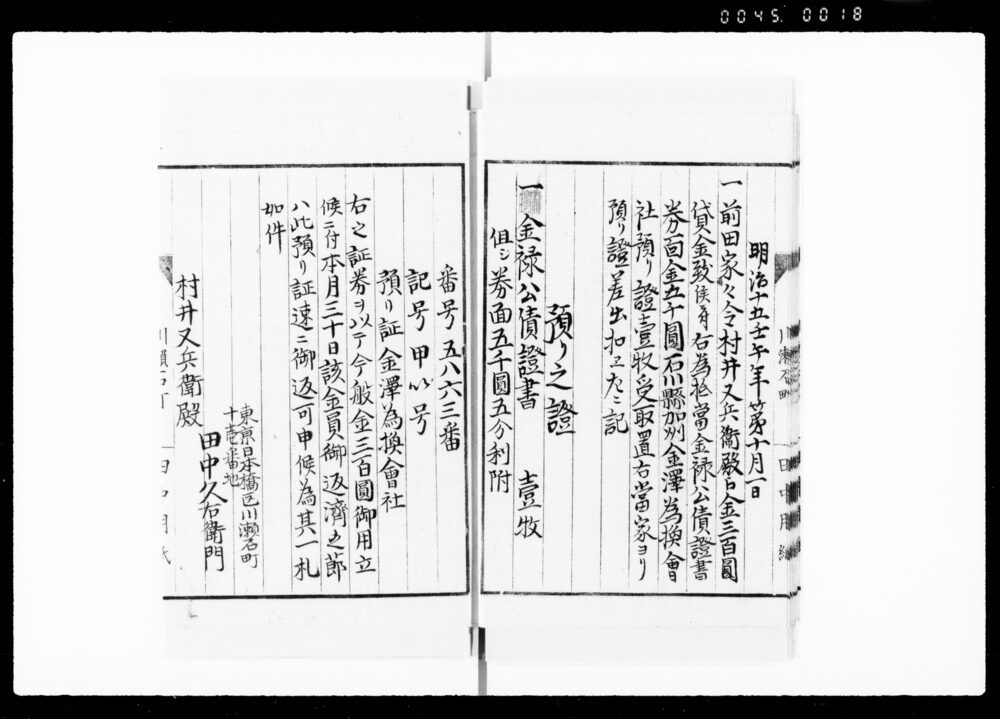 0045. 0018
明治十五壬午年第十月一日
一前田家々令村井又兵衞殿占金三百圓
貸金致候旁右為抵當金禄公債證書
券面金五千圓石川縣加州金澤為換會
社預リ證壹牧受取置右當家ヨリ
預リ證差出扣
記
預り之證
一金禄公債證書 壹牧
但シ券面五千圓五分利附
番号五八六三番
記号甲い号
預リ証金澤為換會社
右之証券ヲ以テ今般金三百圓御用立
候ニ付本月三十日該金員御返済之節
ハ此預リ証速ニ御返可申候為其一札
如件
東京日本橋区川瀬石町
十壱番地
田中久右衛門
村井又兵衛殿
川瀬石町
田中用